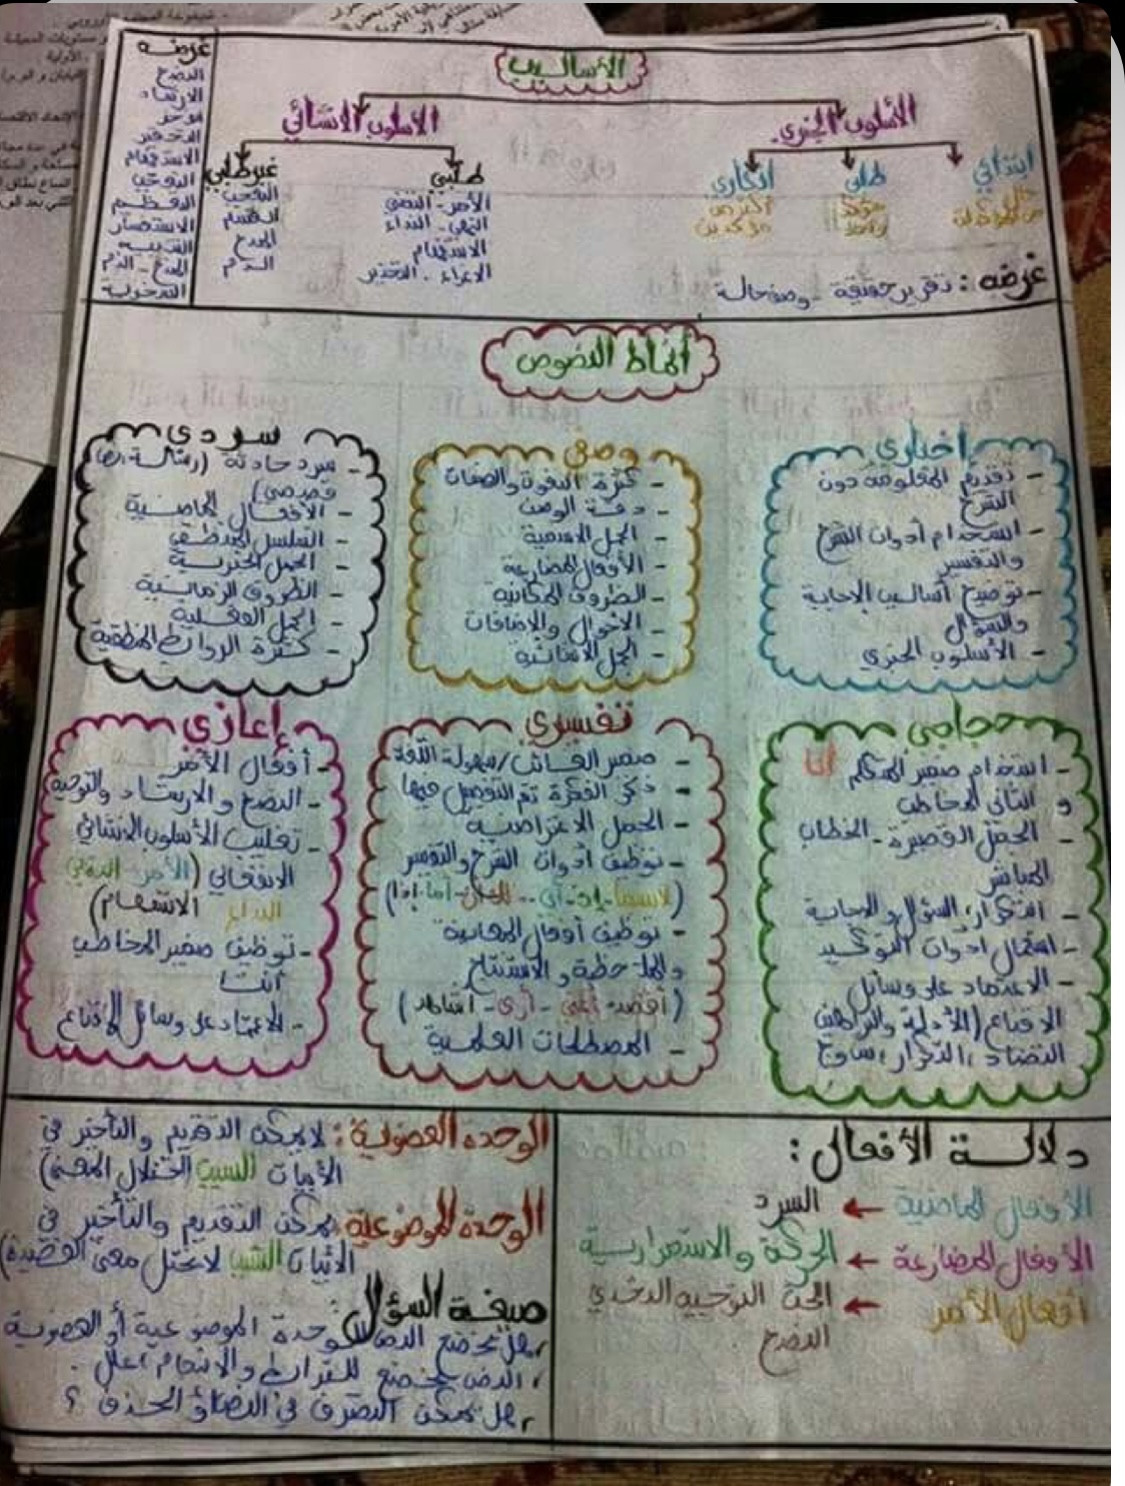 الأساليب
الأسلوب الخبري
الأسلوب الإنشائي
ابتدائي
خال
من المؤكدات
طلبي
مؤكد
واحد
انكاري
أكثر من
مؤكدين
غرضه: تقرير حقيقة - وصف حالة
طلبي
الأمر - التمني
النهي - النداء
الاستفهام
الاغراء - التحذير
غير طلبي
التعجب
القسم
المدح
الذم
غرضه
النصح
الارشاد
التحقير
الاستفهام
التوبيخ
التعظيم
المدح - الذم
السخرية
أنماط النصوص
اخباري
- تقديم المعلومة دون
الشرح
- استخدام أدوات الشرح
والتفسير
- توضيح أساليب الإجابة
والسؤال
- الأسلوب الخبري
وصفي
- كثرة النعوت والصفات
- دقة الوصف
- الجمل الاسمية
- الأفعال المضارعة
- الظروف المكانية
- الأحوال والإضافات
- الجمل الانشائية
سردي
- سرد حادثة (رسالة،
قصيصي)
- الأفعال الماضية
- التسلسل المنطقي
- الجمل الخبرية
- الظروف الزمانية
- الجمل الفعلية
- كثرة الروابط المنطقية
حجاجي
- استخدام ضمير المتكلم أنا
و الثاني المخاطب
- الجمل القصيرة - الخطاب
المباشر
- التكرار، السؤال والاجابة
- استعمال ادوات التوكيد
- الاعتماد على وسائل
الاقناع (الأدلة والبراهين
التضاد، التكرار، ساوج
تفسيري
- ضمير الغائب/سهولة اللغة
- ذكر الفكرة ثم التفصيل فيها
- الجمل الاعتراضية
- توظيف أدوات الشرح والتفسير
(لاسيما - إذ - أي - - أما - إذا)
- توظيف أفعال المعاينة
والملاحظة والاستنتاج
(أقصد - أعني - أرى - أشاهد)
- المصطلحات العلمية
إعازي
- أفعال الأمر
- النصح والارشاد والتوجيه
- تغليب الأسلوب الانشائي
الانفعالي (الأمر - النهي
النداء الاستفهام)
- توظيف ضمير المخاطب
أنت
- الاعتماد على وسائل الاقناع
دلالة الأفعال:
الأفعال الماضية ← السرد
الأفعال المضارعة ← الحركة والاستمرارية
أفعال الأمر ← الحث التوجيه التحدي
النصح
الوحدة العضوية: لا يمكن التقديم والتأخير في
الأبيات السبب (اختلال المعنى)
الوحدة الموضوعية: يمكن التقديم والتأخير في
الأبيات السبب لا يختل معنى القصيدة)
صيغة السؤال:
، هل يخضع النص للوحدة الموضوعية أو العضوية
، النص يخضع للترابط والانسجام، علل .
، هل يمكن التصرف في النص أو الحذف ؟